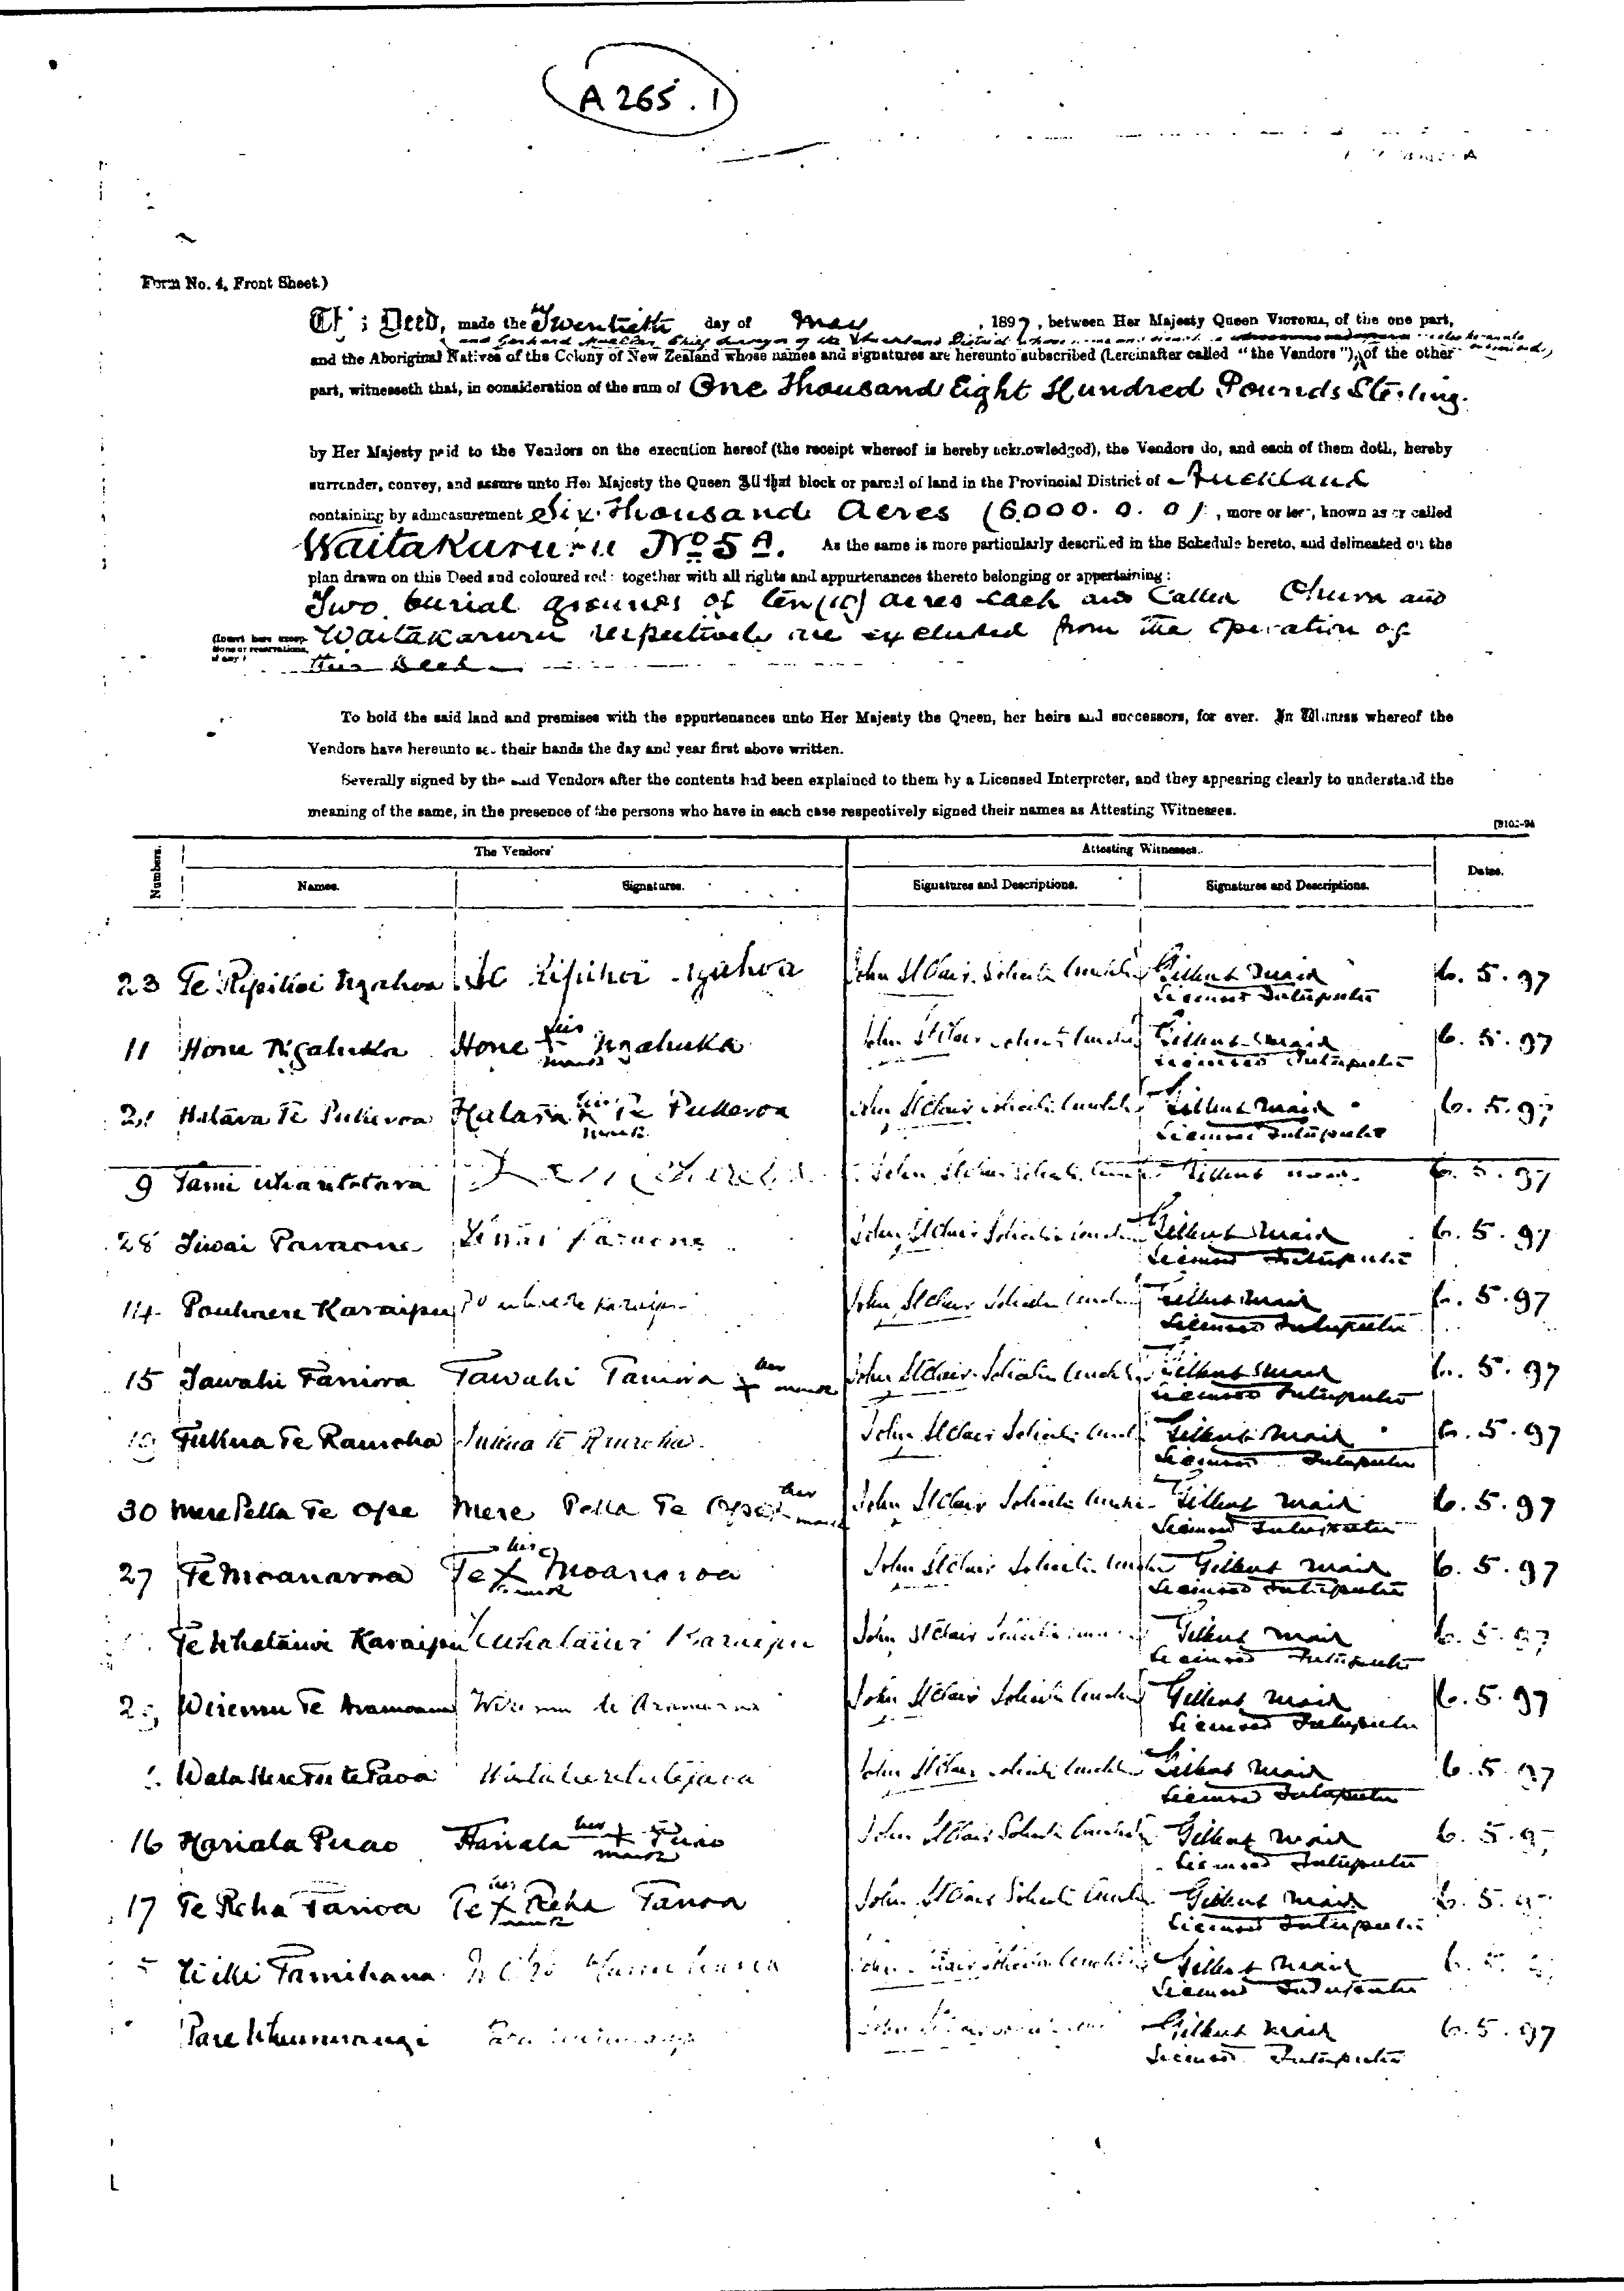 A 265. 1
Form No. 4, Front Sheet.)
Deed, made the Twentieth day of May, 1897, between Her Majesty Queen VICTORIA, of the one part,
and Gerhard Mueller Chief Surveyor of the Auckland District
and the Aboriginal Natives of the Colony of New Zealand whose names and signatures are hereunto subscribed (hereinafter called "the Vendors"), of the other
part, witnesseth that, in consideration of the sum of One Thousand Eight Hundred Pounds Sterling.
by Her Majesty paid to the Vendors on the execution hereof (the receipt whereof is hereby acknowledged), the Vendors do, and each of them doth, hereby
surrender, convey, and assure unto Her Majesty the Queen All that block or parcel of land in the Provincial District of Auckland
containing by admeasurement Six Thousand Acres (6000. 0. 0), more or less, known as or called
Waitakaruru No 5A. As the same is more particularly described in the Schedule hereto, and delineated on the
plan drawn on this Deed and coloured red: together with all rights and appurtenances thereto belonging or appertaining:
Two burial grounds of ten (10) acres each and called Ohura and
(Insert here exceptions or reservations, if any) Waitakaruru respectively are excluded from the operation of
this Deed
To hold the said land and premises with the appurtenances unto Her Majesty the Queen, her heirs and successors, for ever. In Witness whereof the
Vendors have hereunto set their hands the day and year first above written.
Severally signed by the said Vendors after the contents had been explained to them by a Licensed Interpreter, and they appearing clearly to understand the
meaning of the same, in the presence of the persons who have in each case respectively signed their names as Attesting Witnesses.
Numbers. The Vendors' Attesting Witnesses. Dates.
Names. Signatures. Signatures and Descriptions. Signatures and Descriptions.
23 Te Ripikoi Ngahoa John StClair Gilbert Mair 6. 5. 97
Licensed Interpreter
11 Hone Ngahuka Hone his x mark Ngahuka John StClair Gilbert Mair 6. 5. 97
Licensed Interpreter
Hatara Te Pukeroa Hatara his x mark Te Pukeroa John StClair Gilbert Mair 6. 5. 97
Licensed Interpreter
9 Tami John StClair Gilbert Mair 6. 5. 97
28 Tiwai Paraone Tiwai Paraone John StClair Gilbert Mair 6. 5. 97
Licensed Interpreter
14 Pouwhare Karaipu John StClair Gilbert Mair 6. 5. 97
Licensed Interpreter
15 Tawahi Taniora Tawahi Taniora her x mark John StClair Gilbert Mair 6. 5. 97
Licensed Interpreter
Tukua Te Rauroha Tukua te Rauroha John StClair Gilbert Mair 6. 5. 97
Licensed Interpreter
30 Mere Peka Te Ope Mere Peka Te Ope her x mark John StClair Gilbert Mair 6. 5. 97
Licensed Interpreter
27 Te Moanaroa Te his x mark Moanaroa John StClair Gilbert Mair 6. 5. 97
Licensed Interpreter
Te Whataiwi Karaipu Te Whataiwi Karaipu John StClair Gilbert Mair 6. 5. 97
Licensed Interpreter
Wiremu Te Aramoana Wiremu te Aramoana John StClair Gilbert Mair 6. 5. 97
Licensed Interpreter
John StClair Gilbert Mair 6. 5. 97
Licensed Interpreter
16 Hariata Puao Hariata her x mark Puao John StClair Gilbert Mair 6. 5. 97
Licensed Interpreter
17 Te Reha Tanoa Te his x mark Reha Tanoa John StClair Gilbert Mair 6. 5. 97
Licensed Interpreter
Tamihana Gilbert Mair
Licensed Interpreter
Pare Gilbert Mair 6. 5. 97
Licensed Interpreter